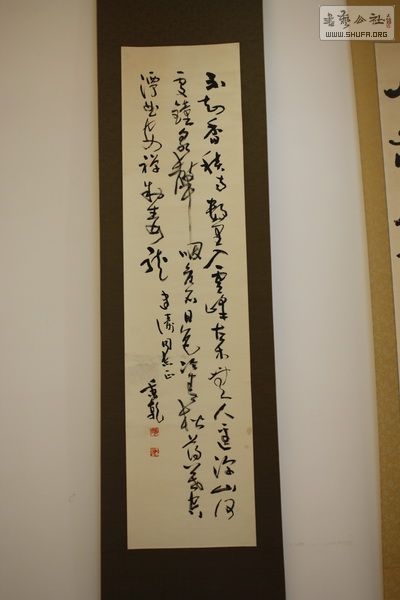 書藝公社
WWW.SHUFA.ORG
不知香積寺數里入雲峰古木無人徑深山何
處鐘泉聲咽危石日色冷青松薄暮空
潭曲安禪制毒龍
濤同志正